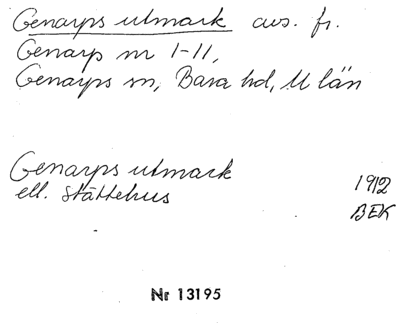 Genarps utmark avs. fr.
Genarp nr 1-11,
Genarps sn, Bara hd, M län
Genarps utmark 1912
ell. Stättehus BEK
Nr 13195